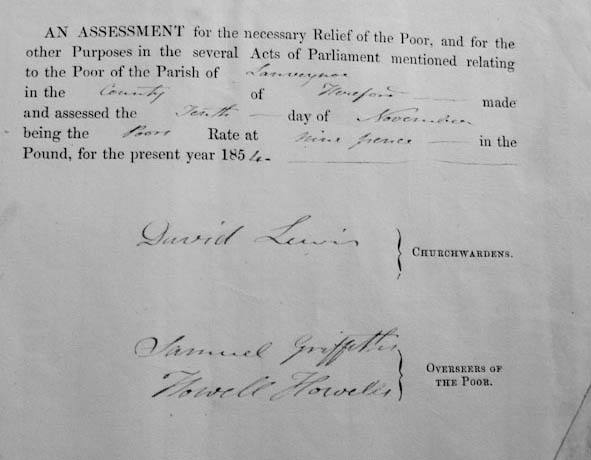 AN ASSESSMENT for the necessary Relief of the Poor, and for the
other Purposes in the several Acts of Parliament mentioned relating
to the Poor of the Parish of Lanveynoe
in the County of Hereford made
and assessed the Tenth day of November
being the Poors Rate at nine pence in the
Pound, for the present year 1854.
David Lewis
CHURCHWARDENS.
Samuel Griffiths
Howell Howells
OVERSEERS OF
THE POOR.